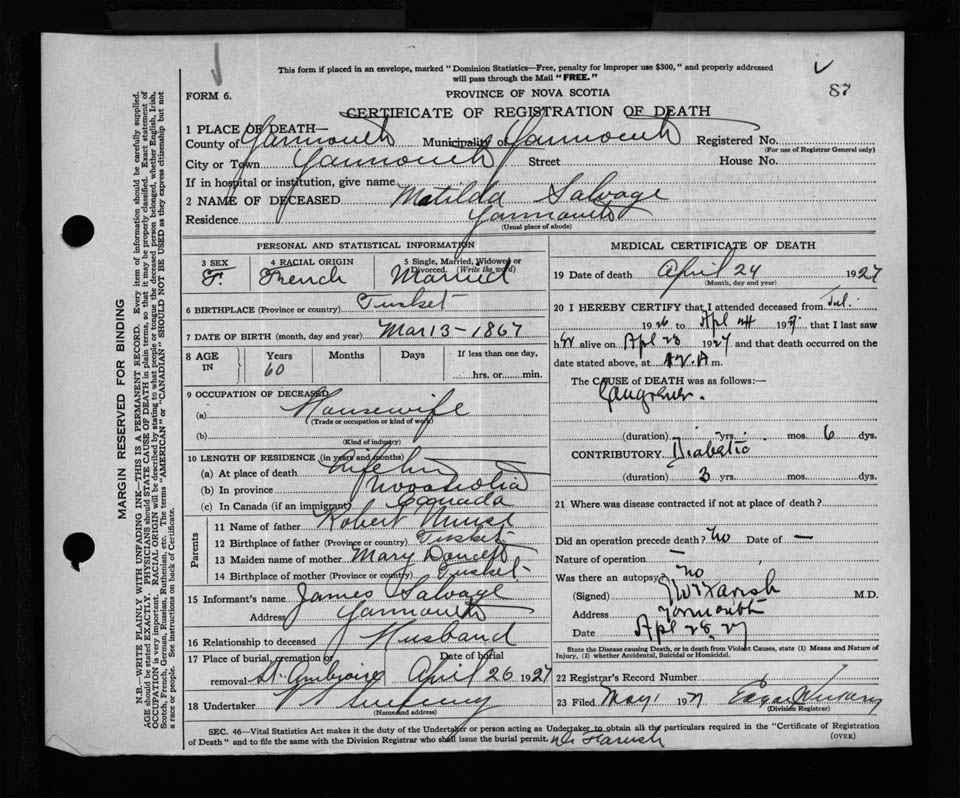 This form if placed in an envelope, marked "Dominion Statistics—Free, penalty for improper use $300," and properly addressed
will pass through the Mail "FREE."
87
FORM 6.
PROVINCE OF NOVA SCOTIA
CERTIFICATE OF REGISTRATION OF DEATH
1 PLACE OF DEATH—
County of Yarmouth Municipality of Yarmouth Registered No.
(For use of Registrar General only)
City or Town Yarmouth Street House No.
If in hospital or institution, give name
2 NAME OF DECEASED Matilda Salvage
Residence Yarmouth
(Usual place of abode)
PERSONAL AND STATISTICAL INFORMATION
3 SEX 4 RACIAL ORIGIN 5 Single, Married, Widowed or
Divorced. (Write the word)
F. French Married
6 BIRTHPLACE (Province or country) Tusket
7 DATE OF BIRTH (month, day and year) Mar 13 - 1867
8 AGE IN Years Months Days If less than one day,
60 hrs. or min.
9 OCCUPATION OF DECEASED
(a) Housewife
(Trade or occupation or kind of work)
(b)
(Kind of industry)
10 LENGTH OF RESIDENCE (in years and months)
(a) At place of death
(b) In province Nova Scotia
(c) In Canada (if an immigrant) Canada
Parents
11 Name of father Robert
12 Birthplace of father (Province or country) Tusket
13 Maiden name of mother Mary
14 Birthplace of mother (Province or country) Tusket
15 Informant's name James Salvage
Address Yarmouth
16 Relationship to deceased Husband
17 Place of burial, cremation or Date of burial
removal St. Ambroise April 26 1927
18 Undertaker
(Name and address)
MEDICAL CERTIFICATE OF DEATH
19 Date of death April 24 1927
(Month, day and year)
20 I HEREBY CERTIFY that I attended deceased from Jul.
1926 to Apl 24 1927 that I last saw
her alive on Apl 23 1927 and that death occurred on the
date stated above, at m.
The CAUSE of DEATH was as follows:—
Gangrene.
(duration) yrs. mos. 6 dys.
CONTRIBUTORY Diabetic
(duration) 3 yrs. mos. dys.
21 Where was disease contracted if not at place of death?
Did an operation precede death? no Date of —
Nature of operation —
Was there an autopsy no
(Signed) Farish M.D.
Address Yarmouth
Date Apl 28. 27
State the Disease causing Death, or in death from Violent Causes, state (1) Means and Nature of
Injury, (2) whether Accidental, Suicidal or Homicidal.
22 Registrar's Record Number
23 Filed May 1 1927 Edgar
(Division Registrar)
SEC. 46—Vital Statistics Act makes it the duty of the Undertaker or person acting as Undertaker to obtain all the particulars required in the "Certificate of Registration
of Death" and to file the same with the Division Registrar who shall issue the burial permit. Farish
(OVER)
MARGIN RESERVED FOR BINDING
N.B.—WRITE PLAINLY WITH UNFADING INK—THIS IS A PERMANENT RECORD. Every item of information should be carefully supplied.
AGE should be stated EXACTLY. PHYSICIANS should STATE CAUSE OF DEATH in plain terms, so that it may be properly classified. Exact statement of
OCCUPATION is very important. RACIAL ORIGIN will be described by stating to what people or tongue the deceased person belonged, whether English, Irish,
Scotch, French, German, Russian, Ruthenian, etc. The terms "AMERICAN" or "CANADIAN" SHOULD NOT BE USED as they express citizenship but not
a race or people. See instructions on back of Certificate.